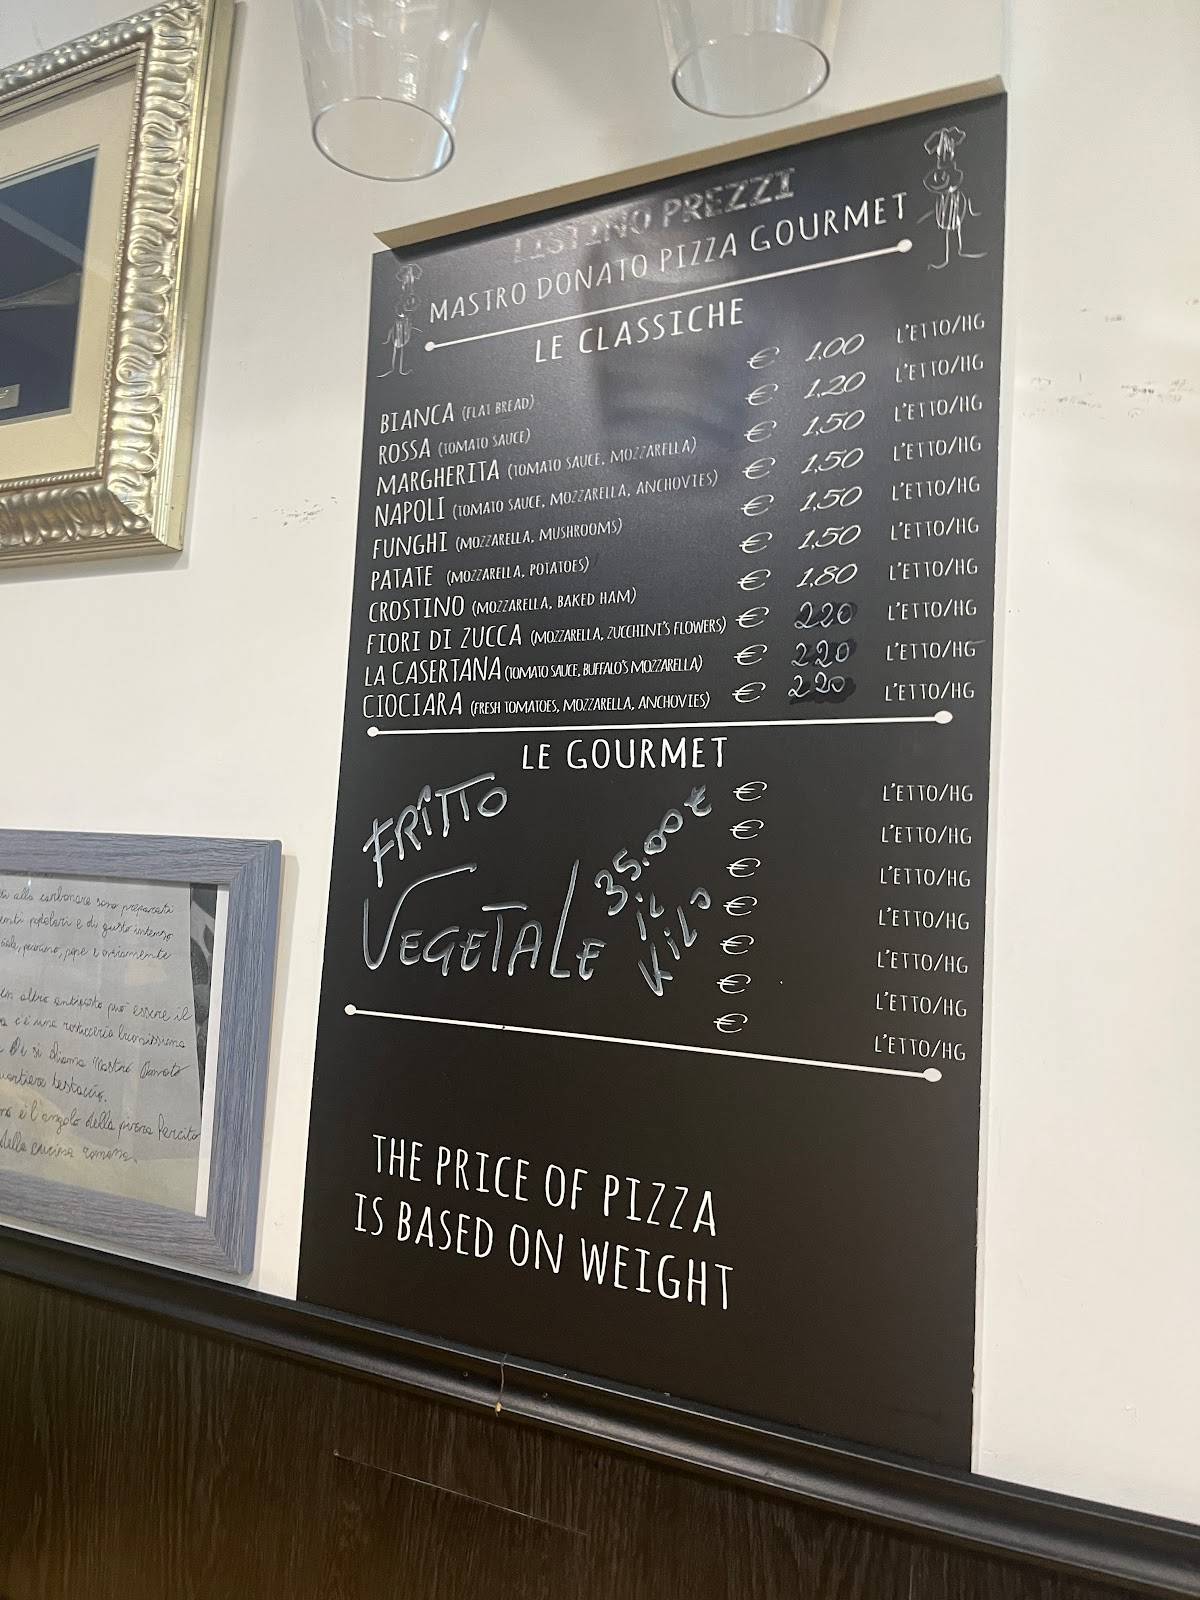 LISTINO PREZZI
MASTRO DONATO PIZZA GOURMET
LE CLASSICHE
BIANCA (FLAT BREAD) € 1,00 L'ETTO/HG
ROSSA (TOMATO SAUCE) € 1,20 L'ETTO/HG
MARGHERITA (TOMATO SAUCE, MOZZARELLA) € 1,50 L'ETTO/HG
NAPOLI (TOMATO SAUCE, MOZZARELLA, ANCHOVIES) € 1,50 L'ETTO/HG
FUNGHI (MOZZARELLA, MUSHROOMS) € 1,50 L'ETTO/HG
PATATE (MOZZARELLA, POTATOES) € 1,50 L'ETTO/HG
CROSTINO (MOZZARELLA, BAKED HAM) € 1,80 L'ETTO/HG
FIORI DI ZUCCA (MOZZARELLA, ZUCCHINI'S FLOWERS) € 220 L'ETTO/HG
LA CASERTANA (TOMATO SAUCE, BUFFALO'S MOZZARELLA) € 220 L'ETTO/HG
CIOCIARA (FRESH TOMATOES, MOZZARELLA, ANCHOVIES) € 220 L'ETTO/HG
LE GOURMET
FRITTO
VEGETALE 35.00 €
il
KILO
€ L'ETTO/HG
€ L'ETTO/HG
€ L'ETTO/HG
€ L'ETTO/HG
€ L'ETTO/HG
€ L'ETTO/HG
€ L'ETTO/HG
THE PRICE OF PIZZA
IS BASED ON WEIGHT
alla carbonara sono preparati
popolari e di gusto intenso
pecorino, pepe e ovviamente
altro antipasto può essere il
c'è una rosticceria buonissima
Mastro Donato
quartiere testaccio.
è l'angolo della
della cucina romana.